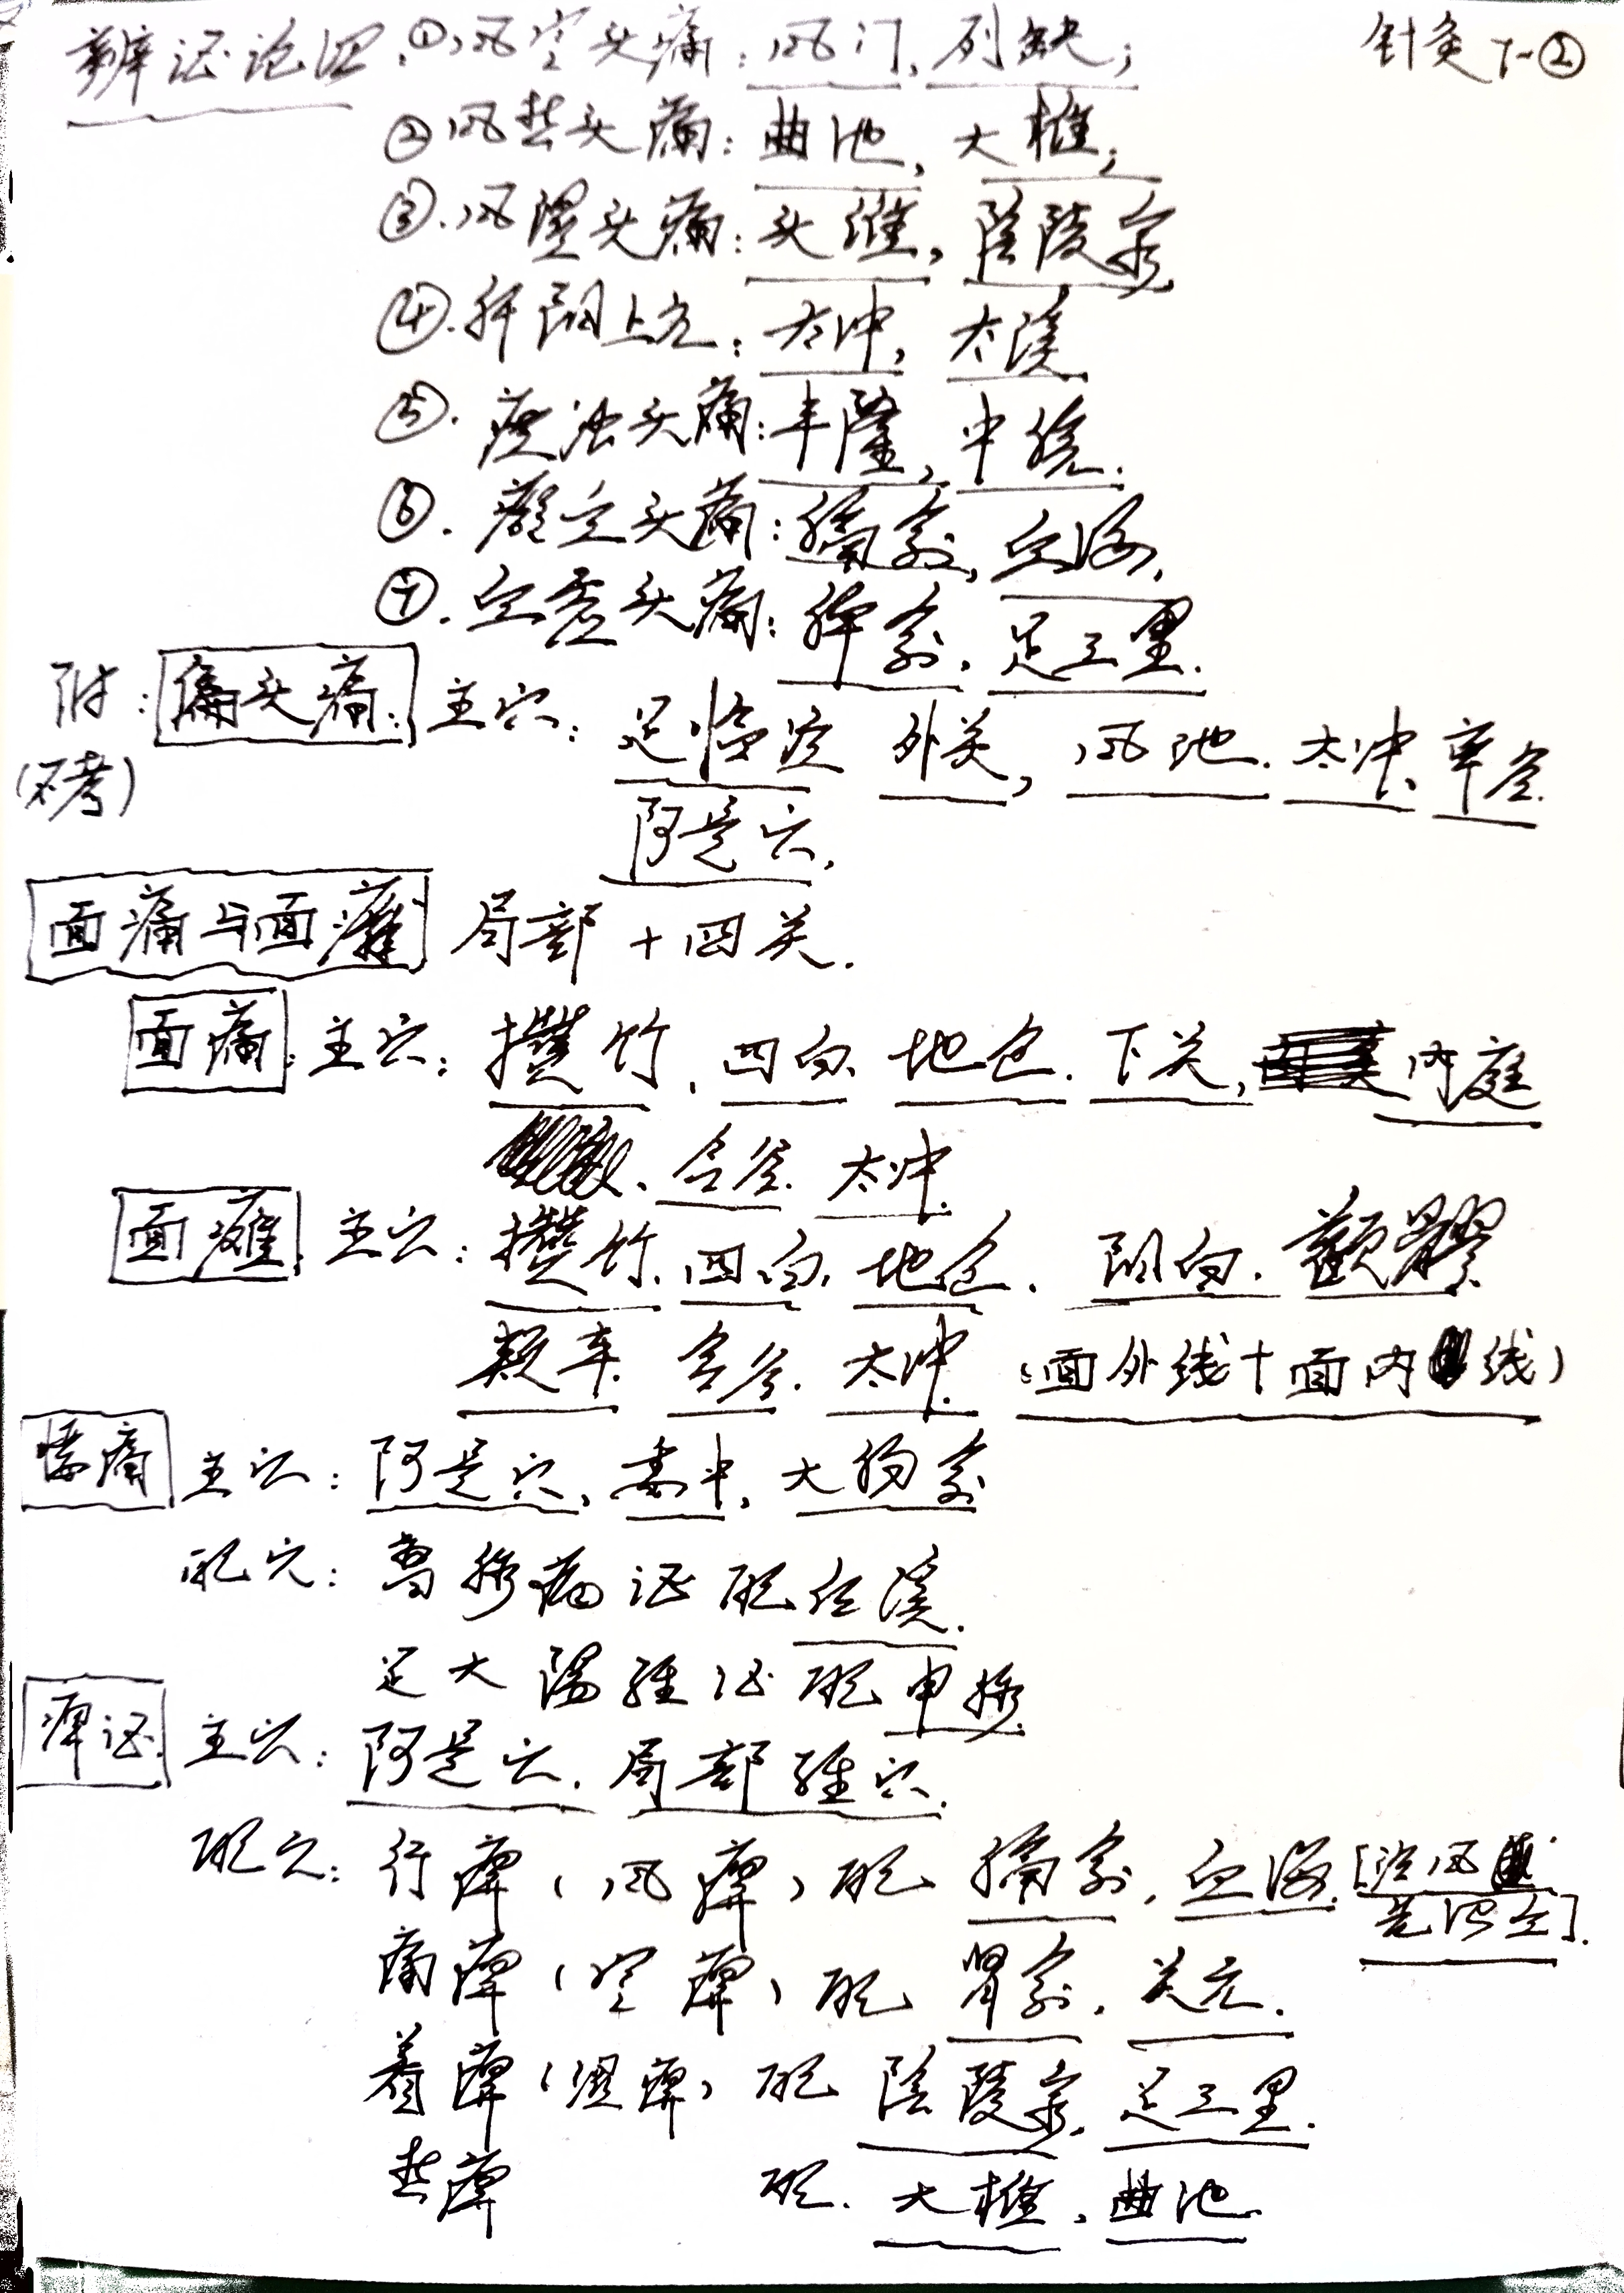 辨证论治：①风寒头痛：风门，列缺；
针灸下-②
②风热头痛：曲池，大椎；
③.风湿头痛：头维，陰陵泉
④.肝阳上亢：太冲，太溪
⑤.痰浊头痛：丰隆，中脘.
⑥.瘀血头痛：膈俞，血海，
⑦.血虚头痛：脾俞，足三里.
附：偏头痛：主穴：足临泣 外关，风池.太冲、率谷.
(不考) 阿是穴，
面痛与面瘫 局部+四关.
面痛：主穴：攒竹，四白、地仓.下关，内庭
、合谷.太冲.
面瘫：主穴：攒竹.四白，地仓.阳白.颧髎
颊车.合谷.太冲.（面外线+面内线）
腰痛 主穴：阿是穴，委中，大肠俞
配穴：督脉病证配后溪.
足太陽经证配申脉.
痹证 主穴：阿是穴.局部经穴.
配穴：行痹（风痹）配 膈俞，血海.[治风
先治血].
痛痹（寒痹）配 肾俞.关元.
着痹（湿痹）配 陰陵泉.足三里.
热痹 配.大椎，曲池.